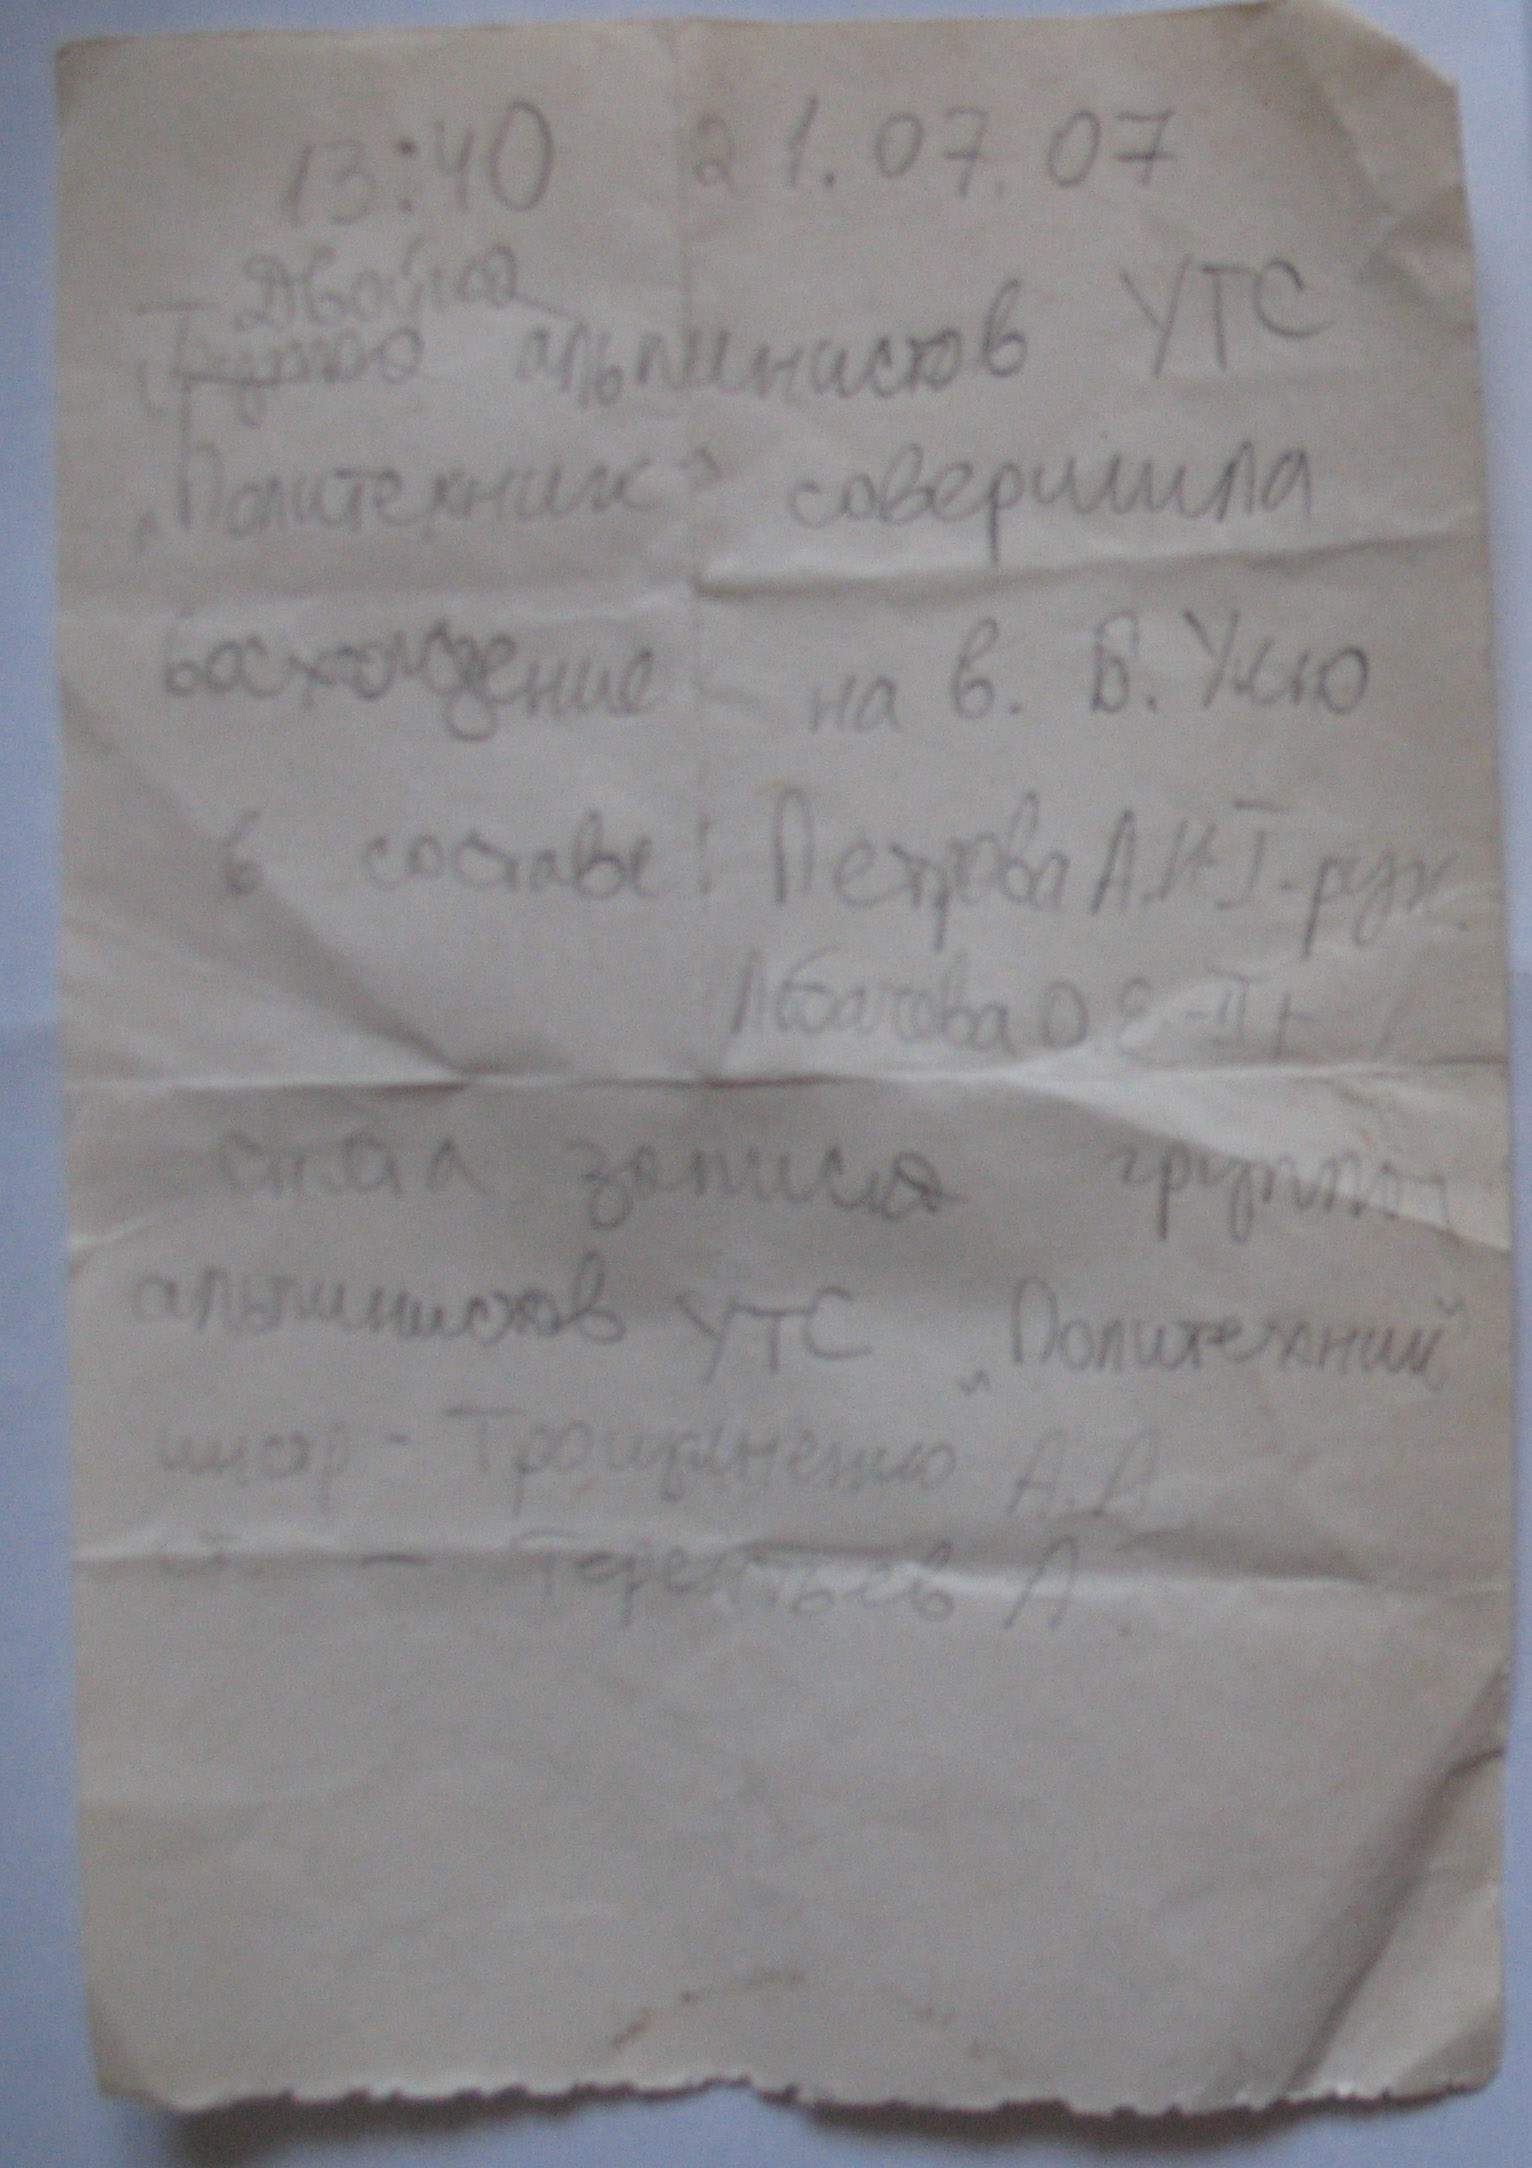 13:40 21.07.07
Двойка
Группа альпинистов УТС
"Политехник" совершила
восхождение на в. В. Ужю
в составе: Петрова А.И I - рук.
О.Е - II
снята записка группы
альпинистов УТС "Политехник"
А.А
- Терентьев А.